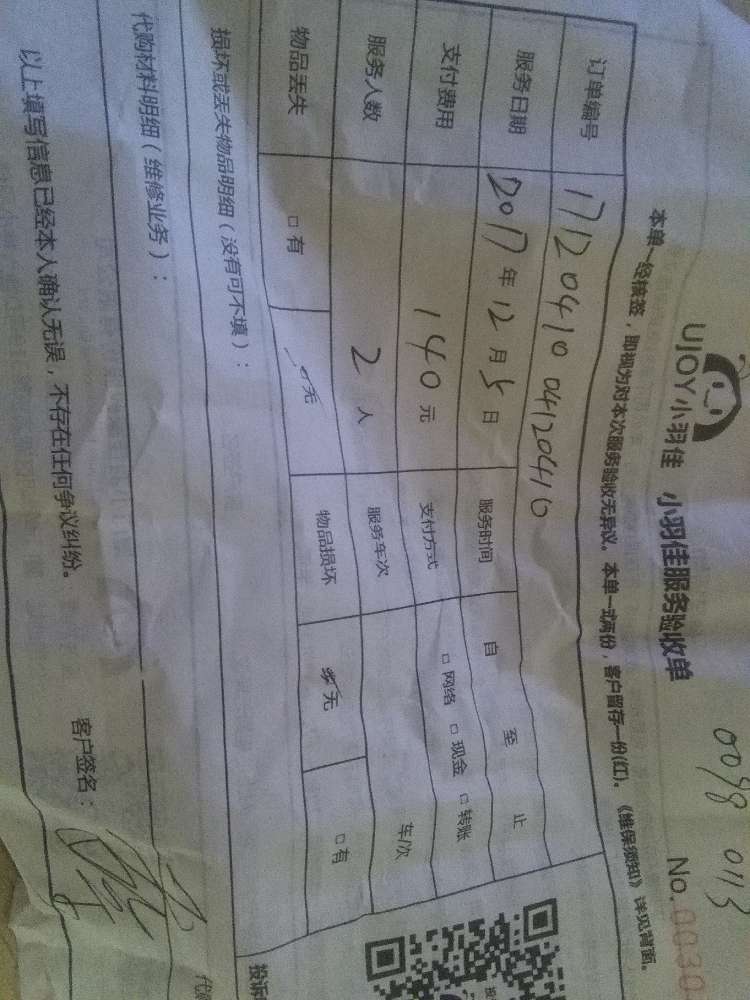 0098 0113
UJOY小羽佳 小羽佳服务验收单 No.0030
本单一经核签，即视为对本次服务验收无异议。本单一式两份，客户留存一份(红)。《维保须知》详见背面。
订单编号 17120410 04120410
服务日期 2017年12月5日 服务时间 自 至 止
支付费用 140元 支付方式 □网络 □现金 □转账
服务人数 2人 服务车次 车/次
物品丢失 □有 无 物品损坏 无 □有
损坏或丢失物品明细（没有可不填）：
代购材料明细（维修业务）：
以上填写信息已经本人确认无误，不存在任何争议纠纷。
客户签名：
投诉